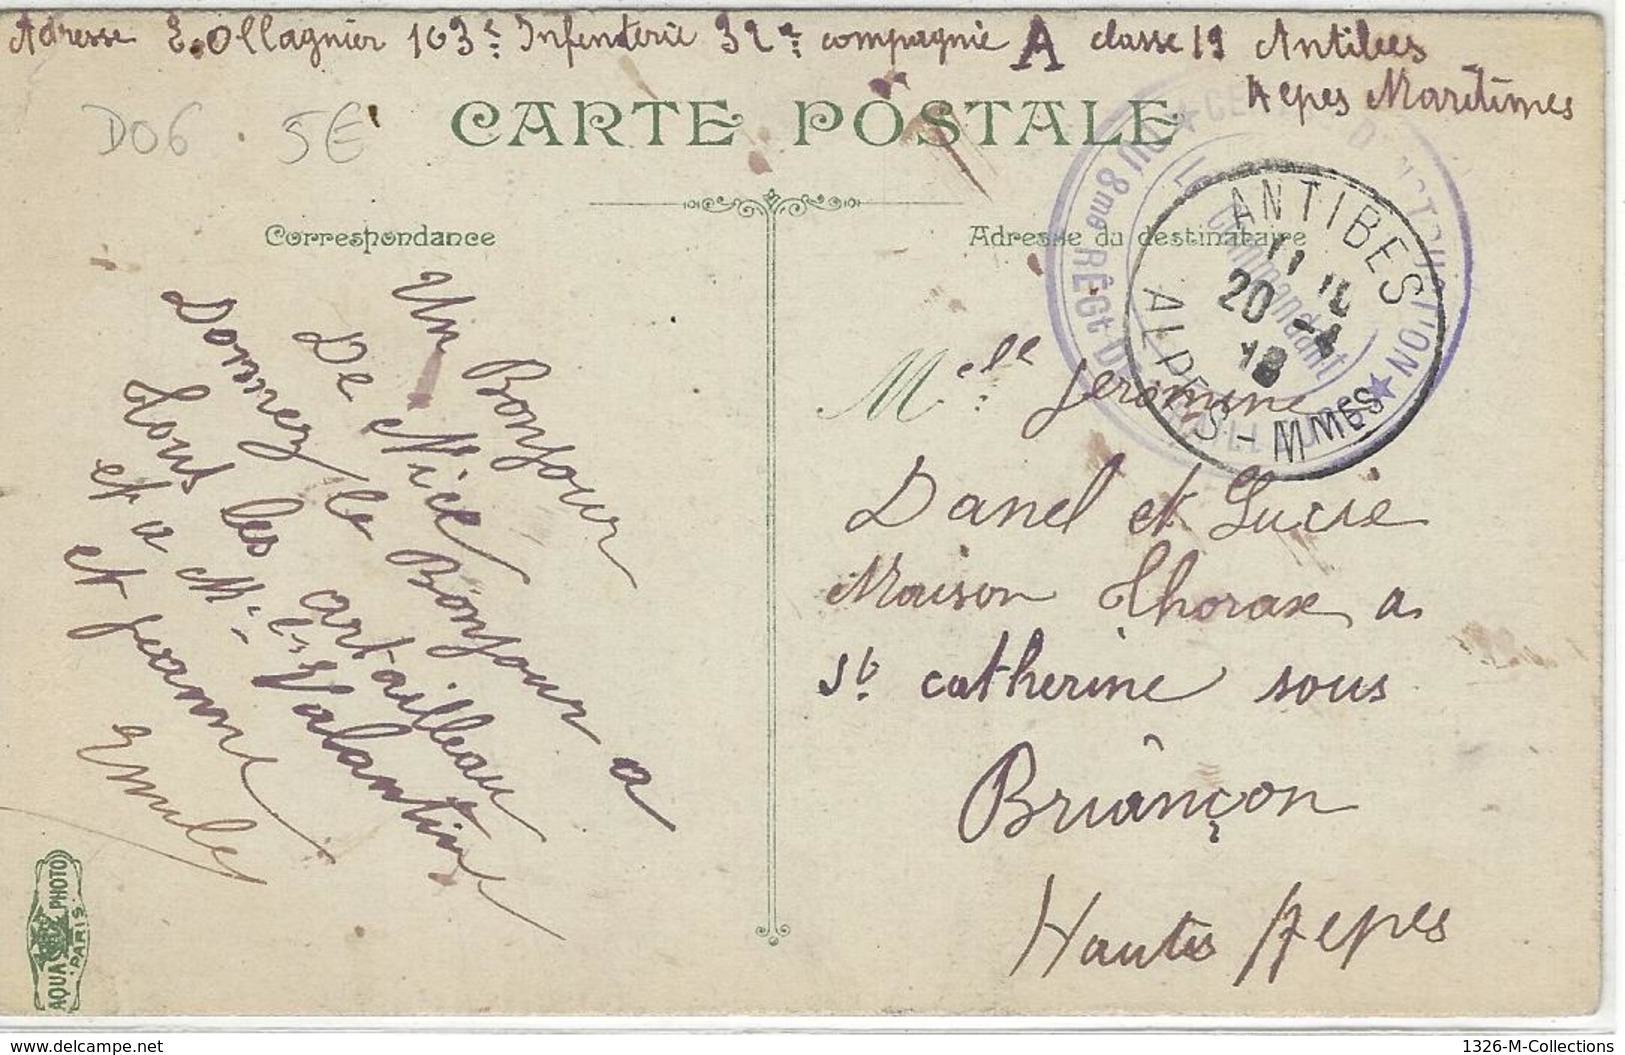 Adresse E. Ollagnier 163e Infenterie 32e compagnie A classe 19 Antibes
Alpes Maritimes
D06 5€
CARTE POSTALE
Correspondance
Adresse du destinataire
Un Bonjour
De Nice
Donnez le Bonjour a
Tous les artailleau
et a Melle Valantine
et jeanne
Emile
Melle jeromine
Danel et Lucie
Maison Thorax a
St catherine sous
Briançon
Hautes Alpes
ANTIBES
11 10
20 -4
18
ALPES-MMES
8me RÉGt D
Commandant
AQUA PHOTO
PARIS
delcampe.net
1326-M-Collections